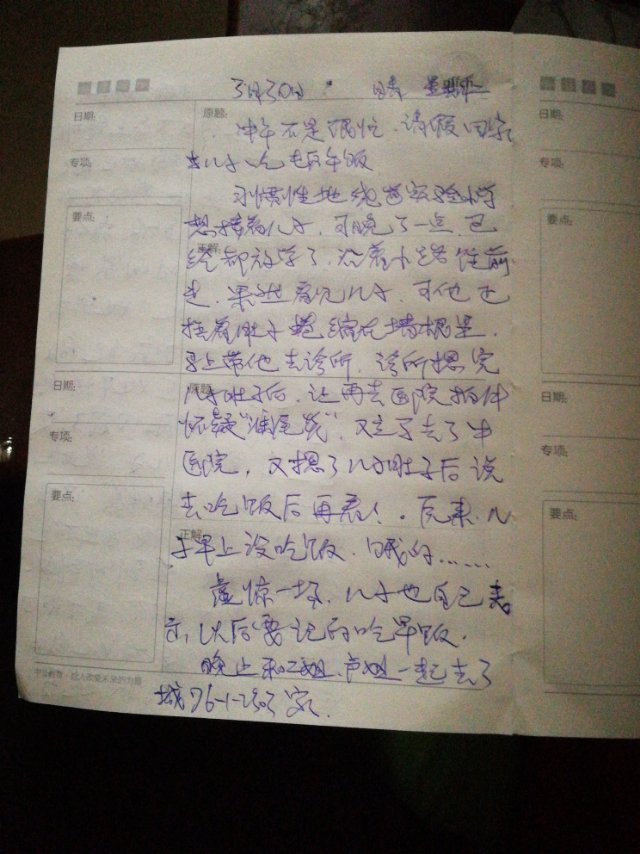 3月30日 晴 星期二
日期:
原题:
中午不是很忙、请假回家
专项:
去儿子、吃顿午饭
习惯性地绕着实验小学
要点:
想接着儿子、可晚了一点、已
正解:
经都放学了、沿着小路往前
走、果然看见儿子、可他正
捂着肚子蜷缩在墙根呈、
马上带他去诊所、诊所摁完
日期:
原题:
儿子肚子后、让再去医院拍片
日期:
专项:
怀疑“阑尾炎”、又立了去了中
专项:
医院,又摁了儿子肚子后说
要点:
要点:
去吃饭后再看!。原来儿
正解:
子早上没吃饭、饿的……
虚惊一场、儿子也自己表
示,以后要记的吃早饭.
晚上和二姐、芦姐一起去了
城76-1-203家.